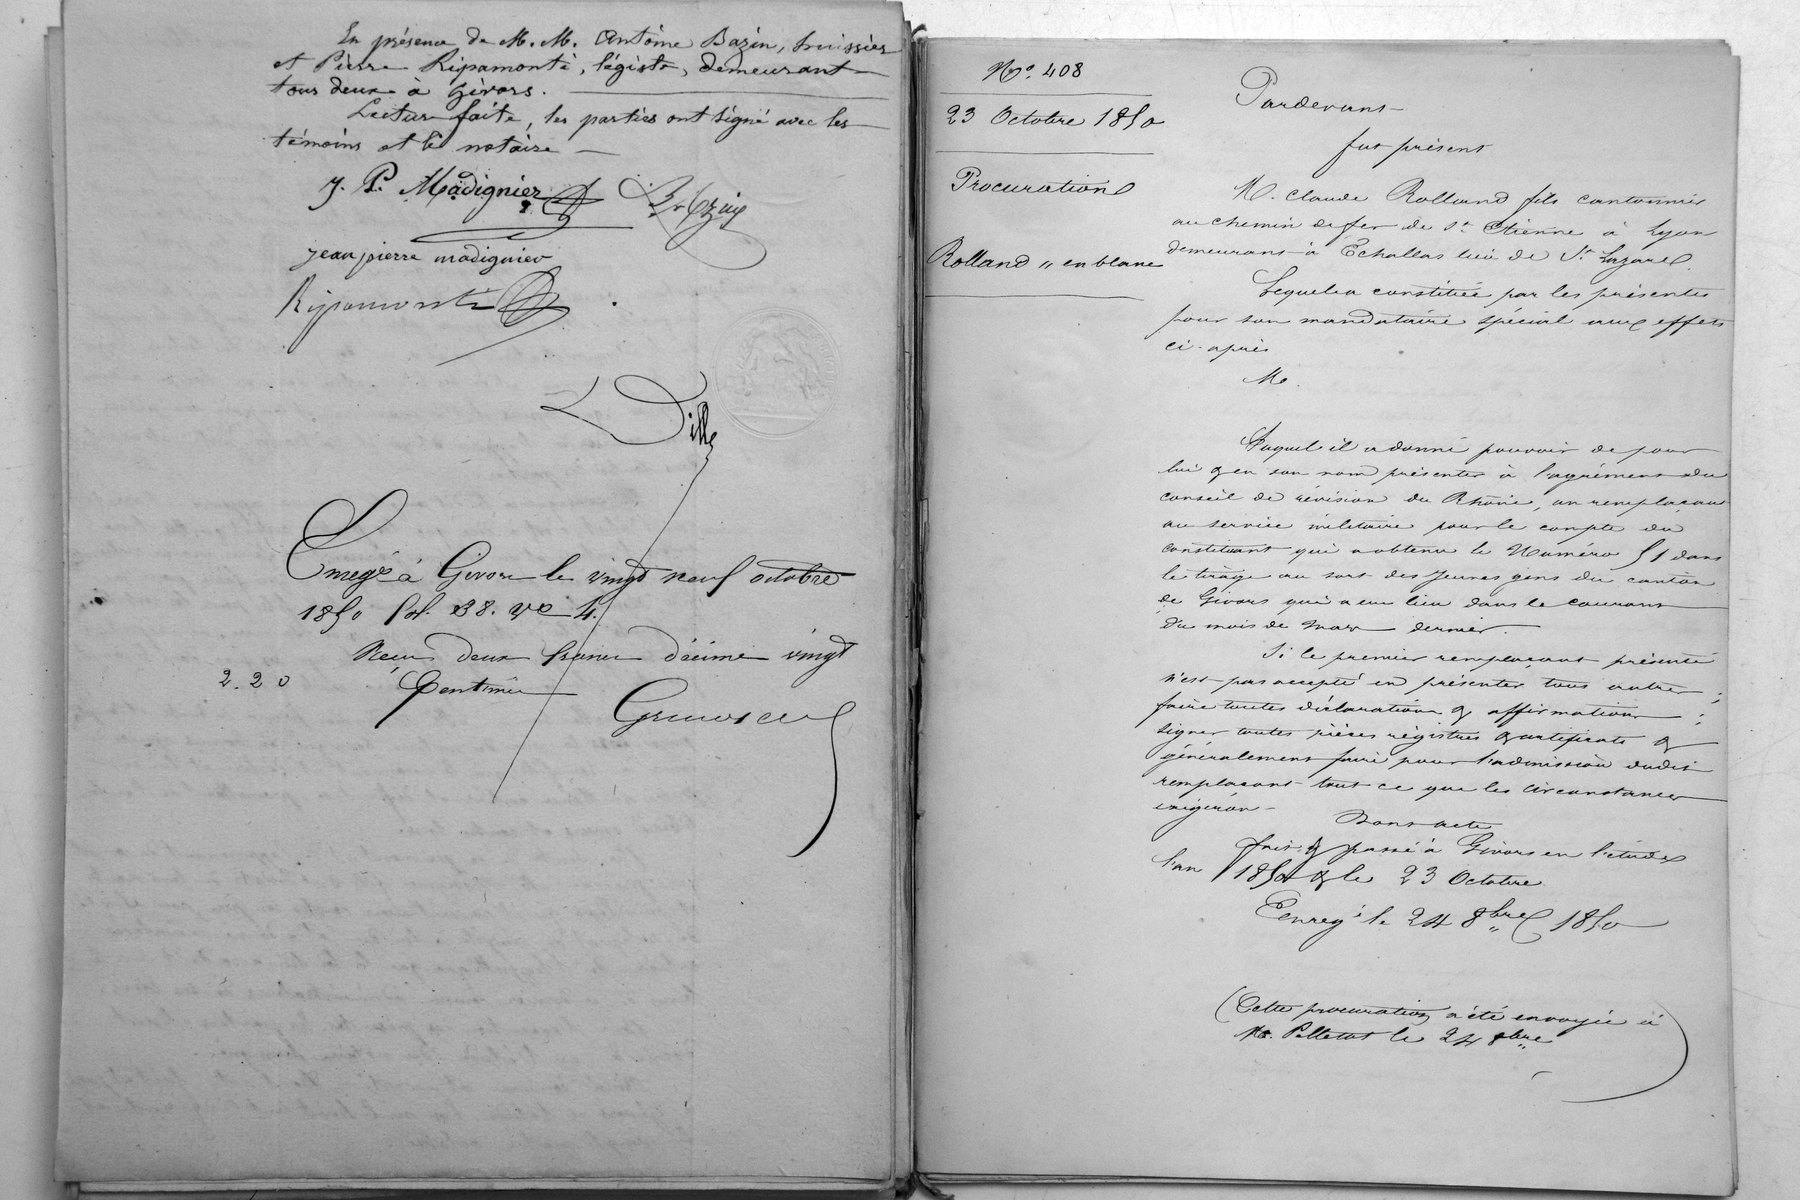 En présence de M.M. Antoine Bazin, huissier
et Pierre Ripamonti, légiste, demeurant
tous deux à Givors.
Lecture faite, les parties ont signé avec les
témoins et le notaire
J. P. Madignier
Bazin
jean pierre madignier
Ripamonti
Enregé à Givors le vingt neuf octobre
1850 fol. 38. Vo 4.
Reçu deux francs décime vingt
2.20 Centimes
No. 408
23 Octobre 1850
Procuration
Rolland " en blanc
Pardevant
fut présent
M. Claude Rolland fils cantonnier
au chemin de fer de St Etienne à Lyon
demeurant à Echallas lieu de St Lazare.
Lequel a constitué par les présentes
pour son mandataire spécial aux effets
ci-après
M.
Auquel il a donné pouvoir de pour
lui & en son nom présenter à l'agrément du
conseil de révision du Rhône, un remplaçant
au service militaire pour le compte du
constituant qui a obtenu le Numéro 51 dans
le tirage au sort des jeunes gens du canton
de Givors qui a eu lieu dans le courant
du mois de mars dernier.
Si le premier remplaçant présenté
n'est pas accepté en présenter tous autres ;
faire toutes déclarations & affirmations ;
signer toutes pièces régistres & certificats &
généralement faire pour l'admission dudit
remplaçant tout ce que les circonstances
exigeron
Dont acte
fait & passé à Givors en l'étude
l'an 1850 & le 23 Octobre
Enregé le 24 8bre 1850
(Cette procuration a été envoyée à
Me. Pelletat le 24 8bre)